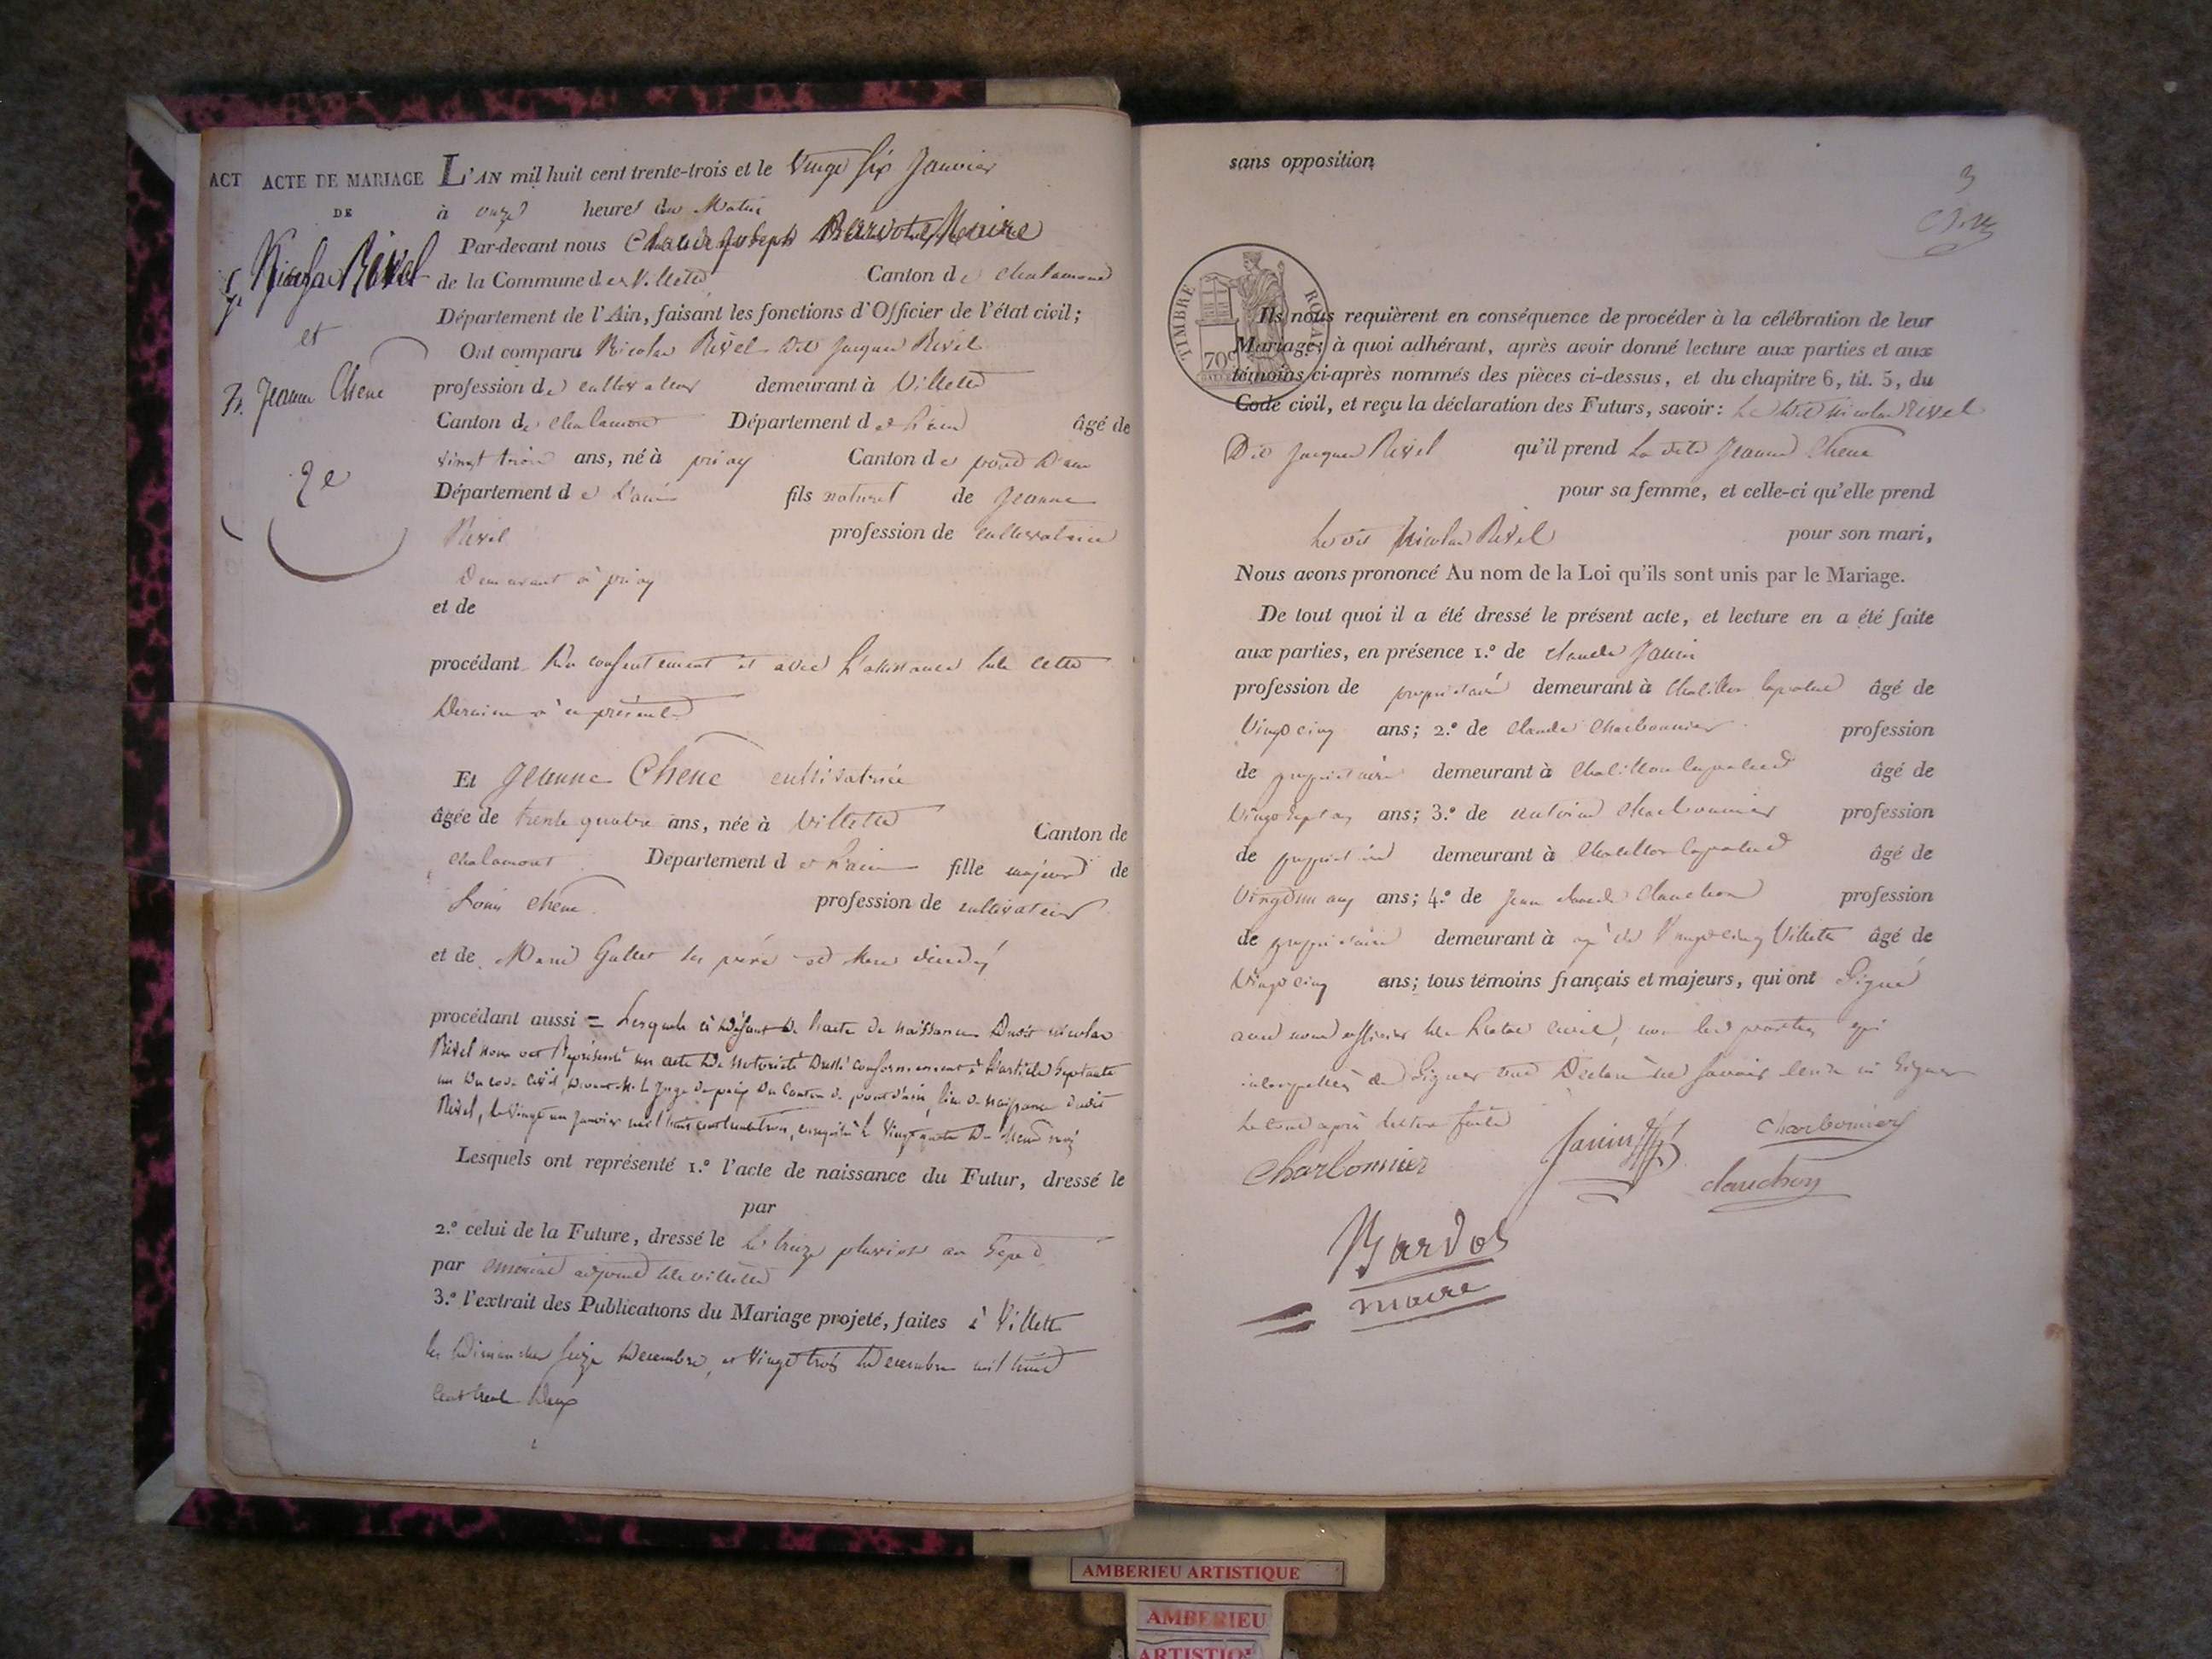 ACT
ACTE DE MARIAGE
DE
Nicolas Rivel
et
Jeanne Chene
2e
L'AN mil huit cent trente-trois et le Vingt six Janvier
à onze heures du Matin
Par-devant nous Claude Joseph Bardot Maire
de la Commune de Villette Canton de Chalamont
Département de l'Ain, faisant les fonctions d'Officier de l'état civil;
Ont comparu Nicolas Rivel dit Jacques Rivel
profession de cultivateur demeurant à Villette
Canton de chalamont Département de l'ain âgé de
vingt trois ans, né à priay Canton de pont d'ain
Département de l'ain fils naturel de Jeanne
Rivel profession de cultivatrice
Demeurant à priay
et de
procédant du consentement et avec l'assistance de cette
Derniere à ce présente
Et Jeanne Chene cultivatrice
âgée de trente quatre ans, née à Villette Canton de
chalamont Département de l'ain fille majeure de
Louis Chene profession de cultivateur
et de Marie Gallet ses père et Mere
procédant aussi = Lesquels à défaut de l'acte de naissance Dudit nicolas
Rivel nous ont Représenté un acte de notoriété Dressé conformement à l'article Septante
un du code civil, Devant M. le Juge de paix du Canton de pont d'ain, lieu de naissance dudit
Rivel, le vingt un janvier mil huit cent trente trois, enregistré le Vingt quatre du même mois
Lesquels ont représenté 1.º l'acte de naissance du Futur, dressé le
par
2.º celui de la Future, dressé le le treize pluviose an Sept
par adjoint de villette
3.º l'extrait des Publications du Mariage projeté, faites à Villette
les Dimanches seize Decembre, et Vingt trois Decembre mil huit
cent trente Deux
sans opposition
3
TIMBRE ROYAL
70c
Ils nous requièrent en conséquence de procéder à la célébration de leur
Mariage; à quoi adhérant, après avoir donné lecture aux parties et aux
témoins ci-après nommés des pièces ci-dessus, et du chapitre 6, tit. 5, du
Code civil, et reçu la déclaration des Futurs, savoir: Le dit nicolas Rivel
Dit Jacques Rivel qu'il prend La dite Jeanne Chene
pour sa femme, et celle-ci qu'elle prend
Le dit Nicolas Rivel pour son mari,
Nous avons prononcé Au nom de la Loi qu'ils sont unis par le Mariage.
De tout quoi il a été dressé le présent acte, et lecture en a été faite
aux parties, en présence 1.º de claude Janin
profession de propriétaire demeurant à Chatillon lapalud âgé de
Vingt cinq ans; 2.º de Claude Charbonnier profession
de propriétaire demeurant à Chatillon lapalud âgé de
Vingt Sept ans ans; 3.º de antoine Charbonnier profession
de propriétaire demeurant à Chatillon lapalud âgé de
Vingt un ans ans; 4.º de Jean Claude Clauchon profession
de propriétaire demeurant à agé de Vingt cinq Villette âgé de
Vingt cinq ans; tous témoins français et majeurs, qui ont Signé
avec nous officier de l'état civil, non les parties qui
interpellés de Signer ont Déclaré ne savoir ni Signer
Le tout après lecture faite
Charbonnier Janin Charbonnier
clauchon
Bardot
maire
AMBERIEU ARTISTIQUE
AMBERIEU
ARTISTIQUE